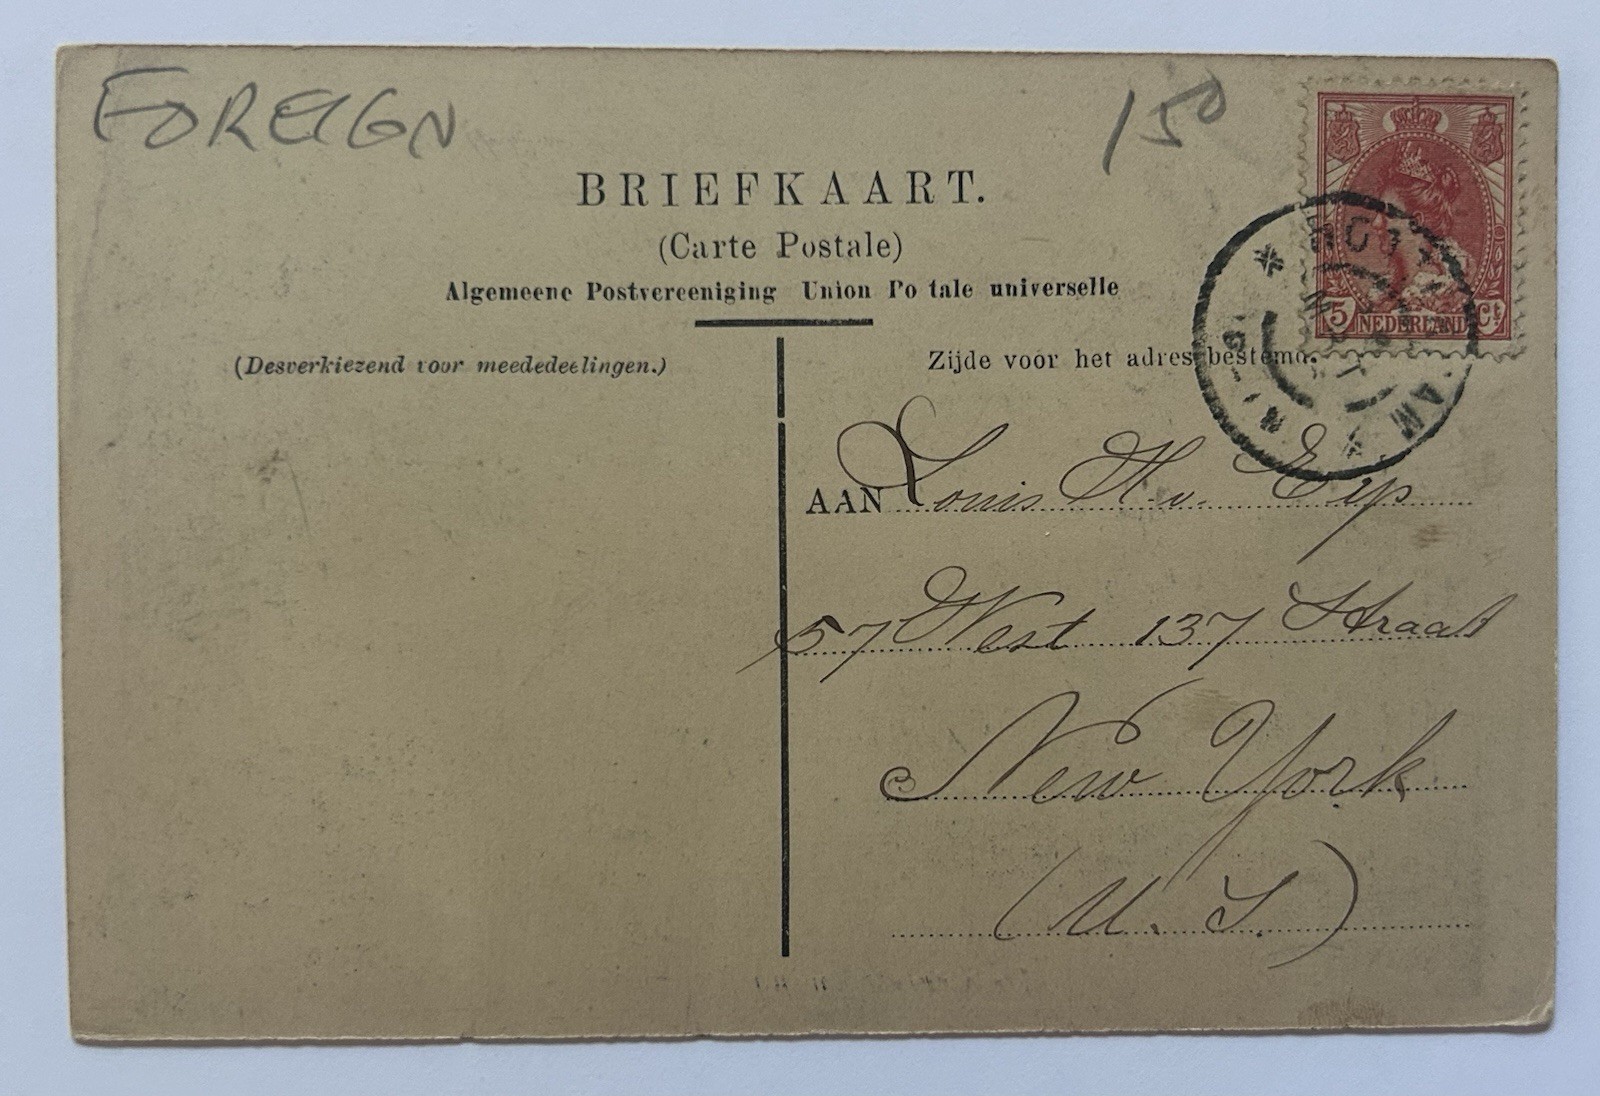 FOREIGN
150
BRIEFKAART.
(Carte Postale)
Algemeene Postvereeniging Union Po tale universelle
(Desverkiezend voor meededeelingen.)
Zijde voor het adres bestemd.
5 NEDERLAND Ct
AAN Louis H. v. Erp
57 West 137 Straat
New York
(U. S.)